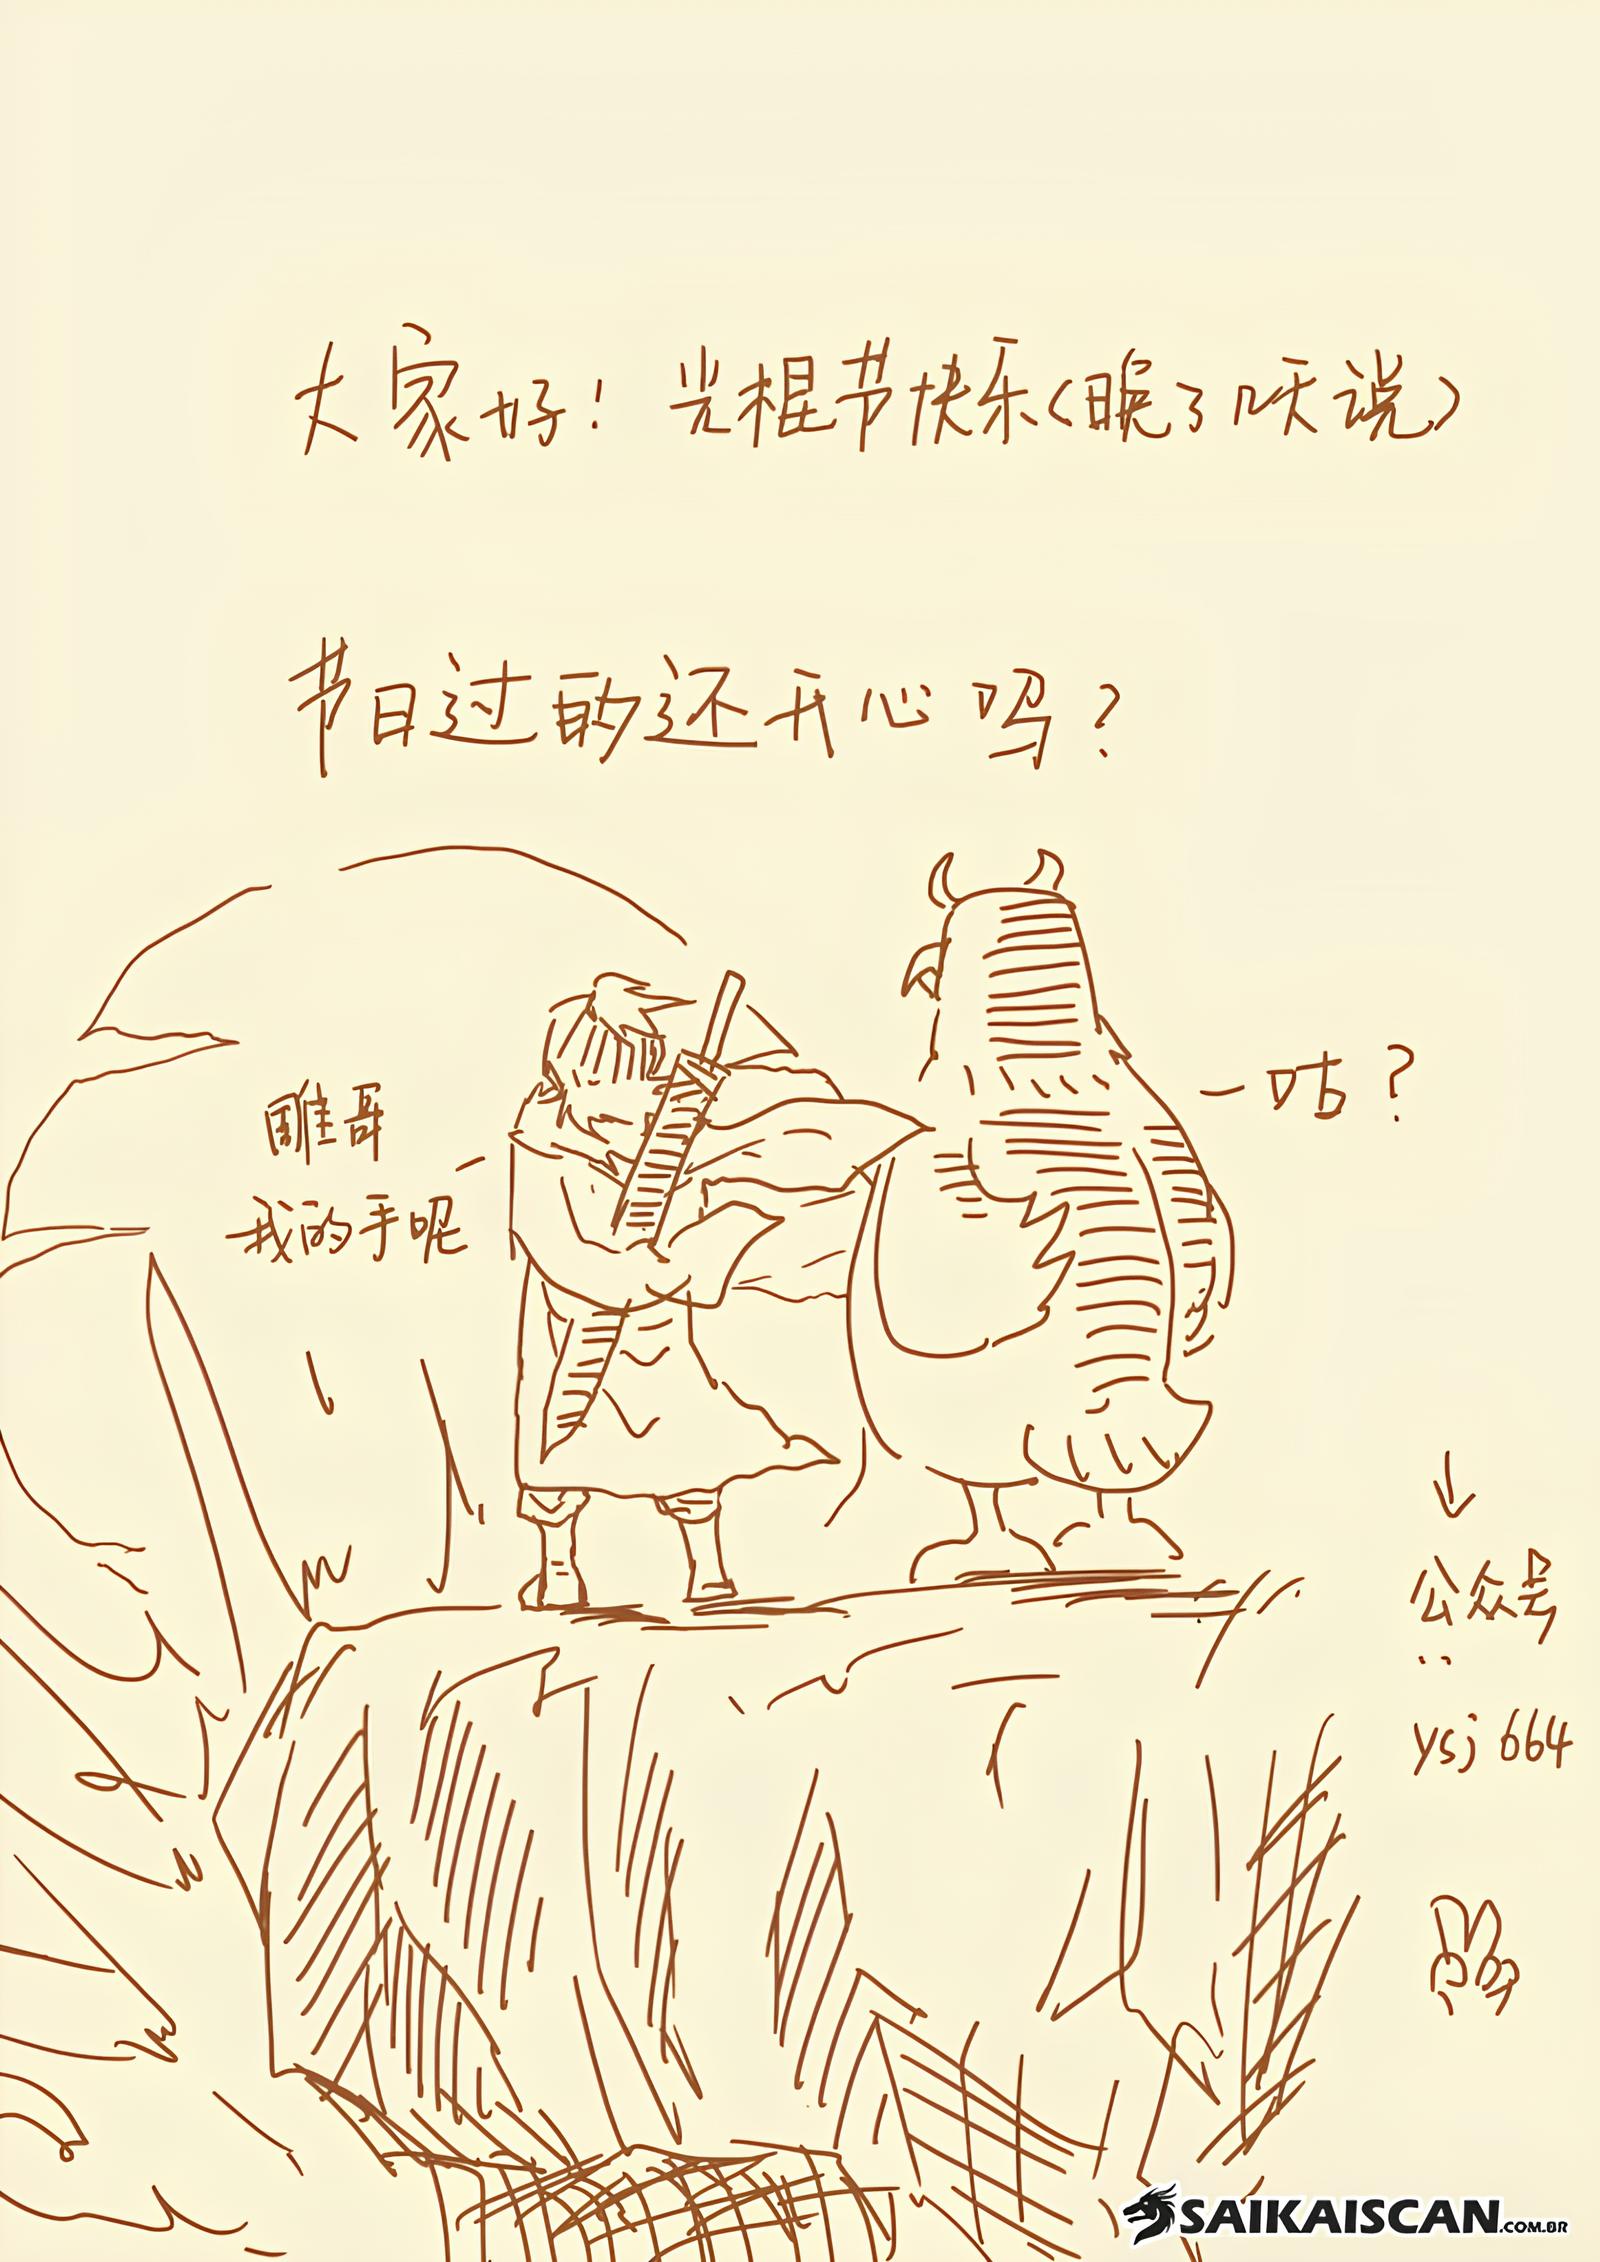 大家好！光棍节快乐（晚了呋说）
节日过的还开心吗？
雎哥
我的手呢
咕？
↓
公众号
：
ysj 664
SAIKAISCAN.COM.BR